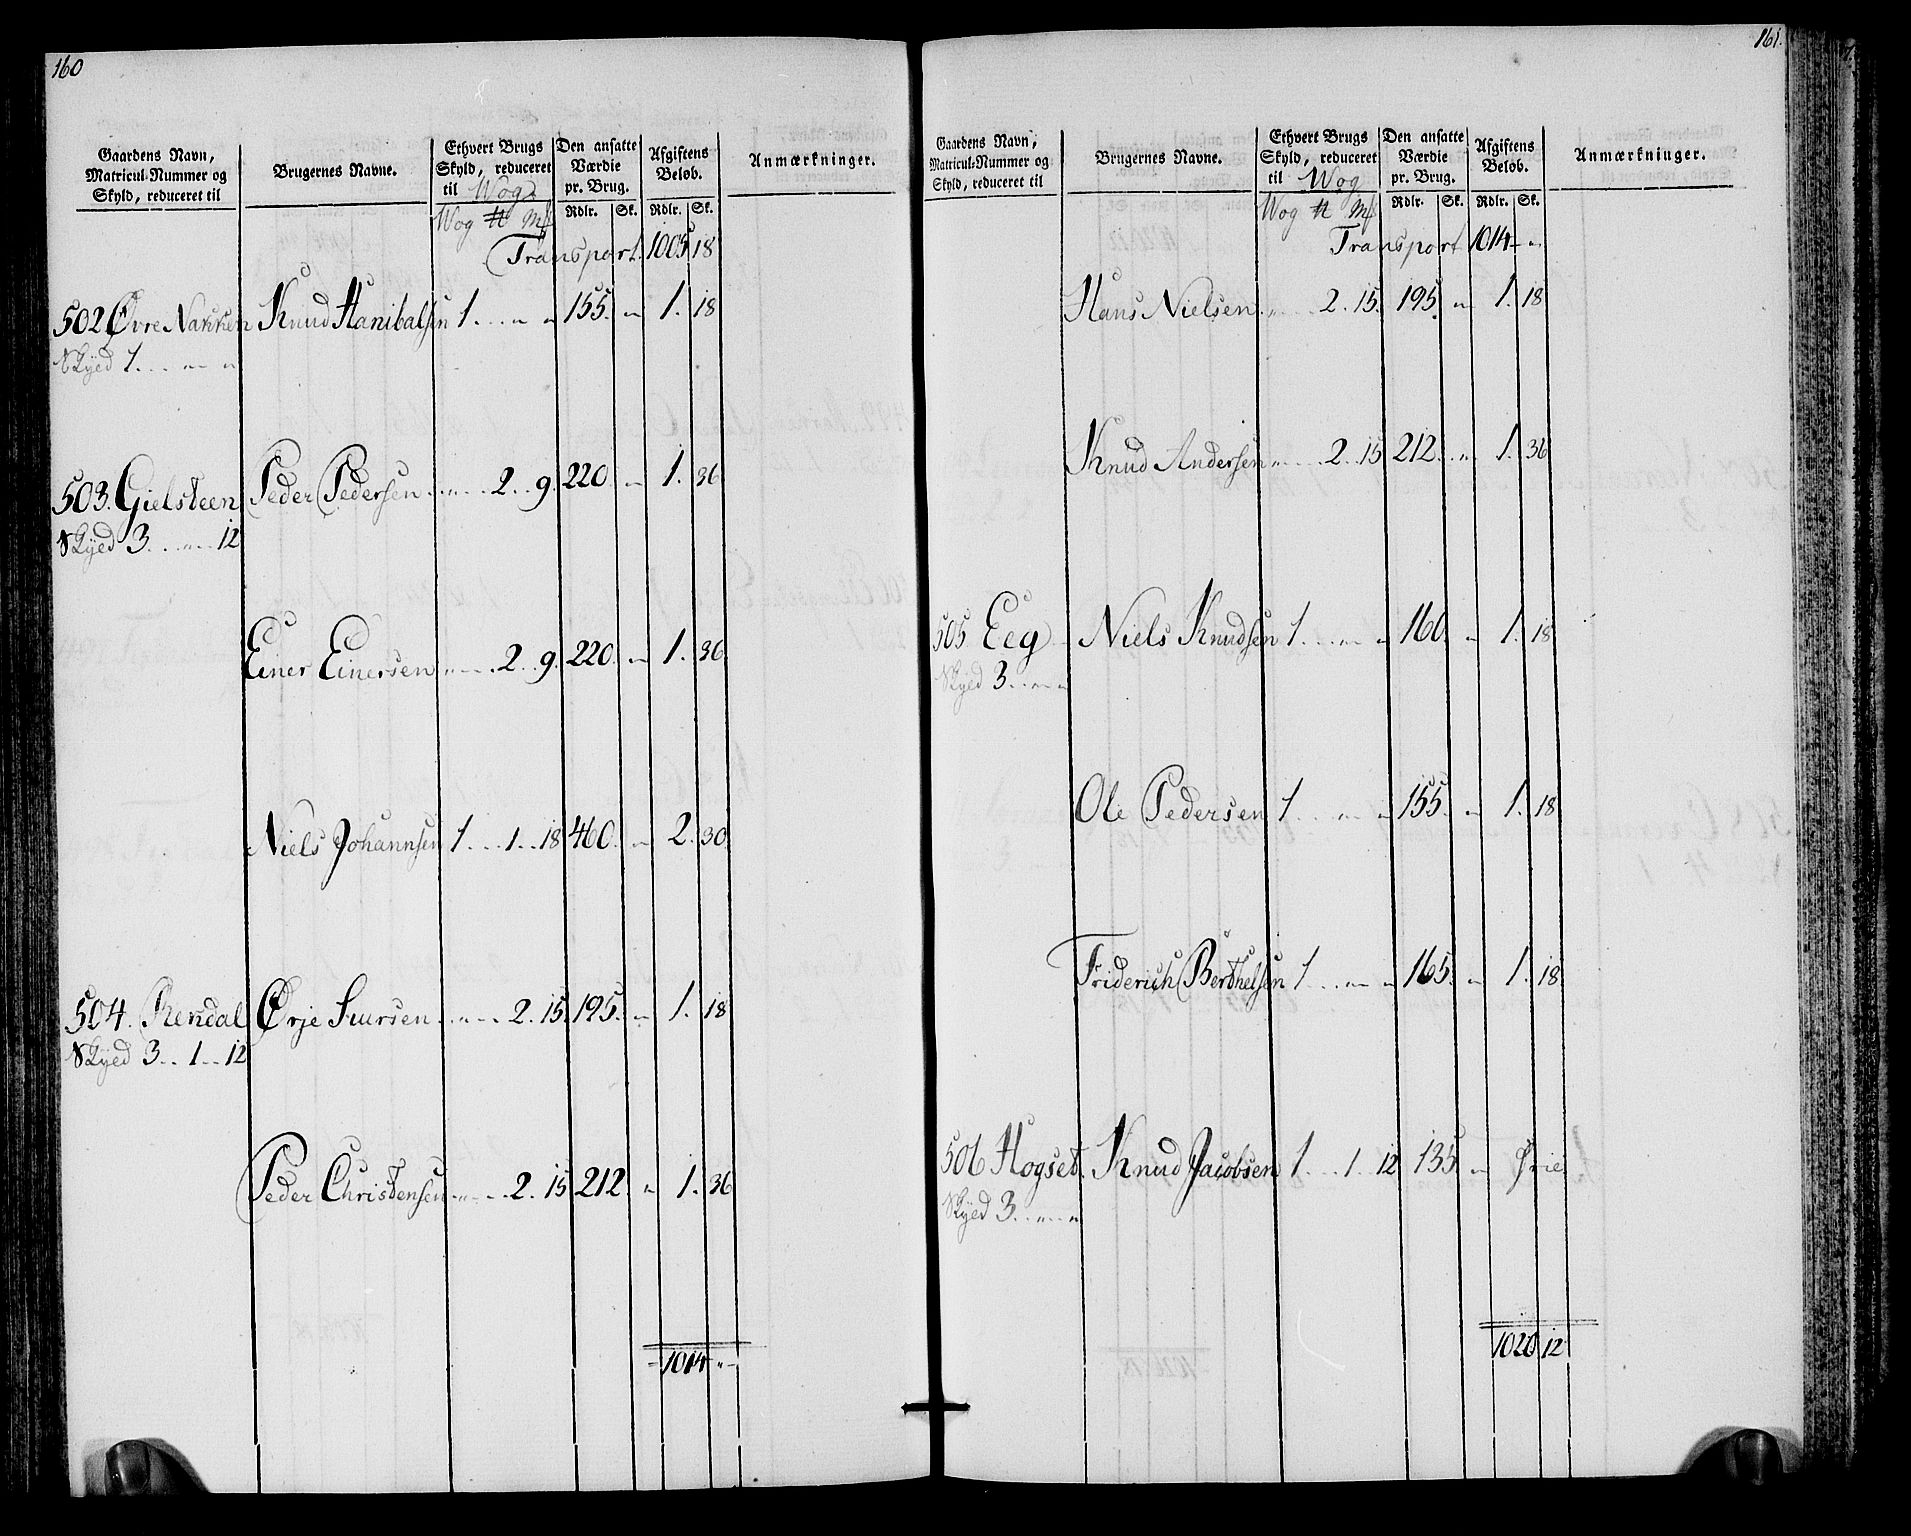 160
Gaardens Navn, Matricul-Nummer og Skyld, reduceret til
Brugernes Navne.
Ethvert Brugs Skyld, reduceret til Wog
Den ansatte Værdie pr. Brug.
Afgiftens Beløb.
Anmærkninger.
Wog ℔ Mk Rdlr. Sk. Rdlr. Sk.
Transport 1005 18
502 Øvre Nakken Knud Hanibalsen 1 . . . „ „ 155. „ 1. 18
Skyed 1. . . „ „
503. Gielsteen Peder Pedersen . . „ . . 2 . . 9. 220 „ 1. 36
Skyed 3. . . „ . . 12
Einer Einersen „ . . 2 . . 9. 220. „ 1. 36
Niels Johannsen 1 . . . 1 . . 18 460. „ 2. 30.
504. Rendal Ørje Siursen . . „ . . 2. 15. 195. „ 1. 18
Skyed 3 . . 1 . . 12
Peder Christensen . . „ . . 2. 15 212. „ 1. 36
1014 „
161.
Gaardens Navn, Matricul-Nummer og Skyld, reduceret til
Brugernes Navne.
Ethvert Brugs Skyld, reduceret til Wog
Den ansatte Værdie pr. Brug.
Afgiftens Beløb.
Anmærkninger.
Wog ℔ Mk Rdlr. Sk. Rdlr. Sk.
Transport 1014 „
Hans Nielsen. „ . . . 2. 15. 195. „ 1. 18
Knud Andersen „ . . . 2. . 15 212. „ 1. 36
505. Eeg Niels Knudsen 1. . . „ „ 160. „ 1. 18
Skyed 3. . „ „
Ole Pedersen 1 . . . „ „ 155. „ 1. 18
Friderich Berthelsen 1 . . . „ „ 165. „ 1. 18
506 Hogset. Knud Jacobsen 1 . . . 1 . . 12 135. „ frie
Skyed 3 . . „ . „
1020 12